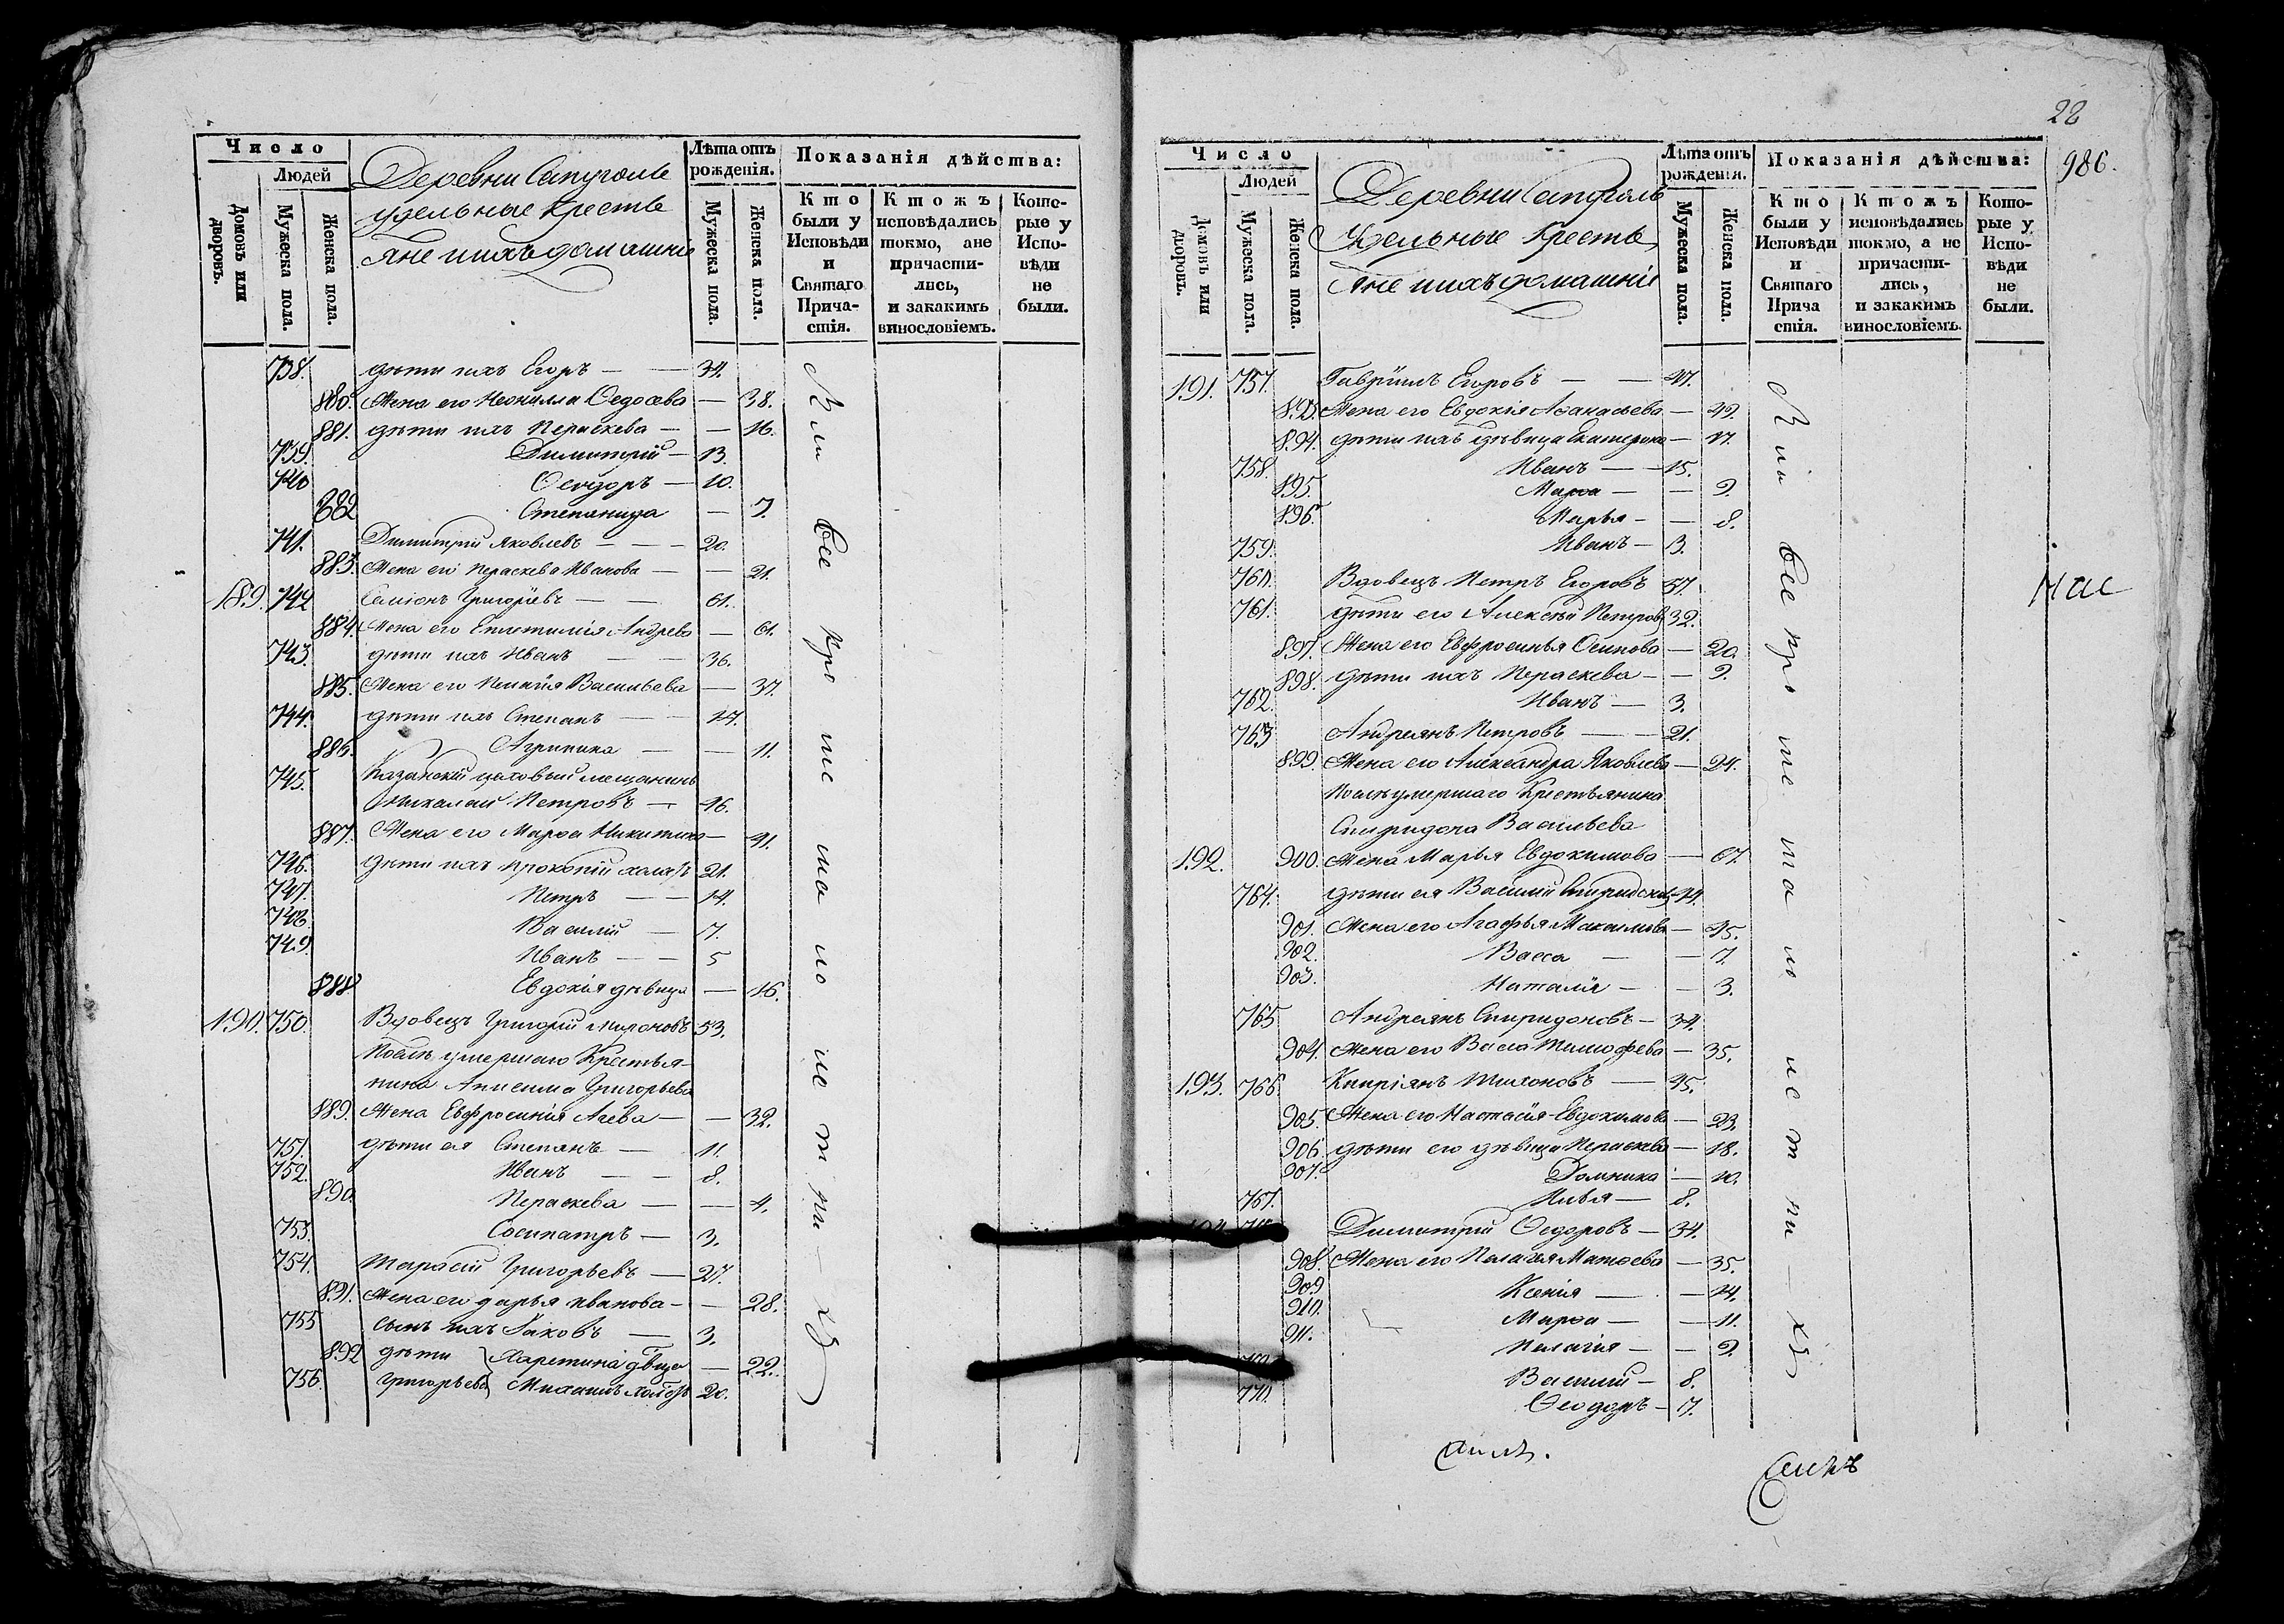 Число
Людей
Домовъ или дворовъ.
Мужеска пола.
Женска пола.
Деревни Сапуголь
удельные Кресть
яне и ихъ домашніе
Лѣта отъ рожденія.
Мужеска пола.
Женска пола.
Показанія дѣйства:
Кто были у Исповѣди и Святаго Прича-стія.
Ктожъ исповѣдались токмо, ане причасти-лись, и закакимъ винословіемъ.
Кото-рые у Испо-вѣди не были.
738. дѣти ихъ Егоръ — 34.
880. Жена его Неонилла Ѳедоѳева — 38.
881. дѣти ихъ Параскева — 16.
739. Димитрій — 13.
740 Ѳеодоръ — 10.
882 Степанида — 7.
741. Димитрій Яковлевъ — 20.
883. Жена его Параскева Иванова — 21.
189. 742 Симіонъ Григорьевъ — 61.
884. Жена его Андрева — 61.
743. дѣти ихъ Иванъ — 36.
885. Жена его Васильева — 37.
744. дѣти ихъ Степанъ — 14.
886. Агрипина — 11.
745. Казанскій цеховый мещанинъ
Николай Петровъ — 46.
887. Жена его Марѳа Никитина — 41.
746. дѣти ихъ Прокопій холос 21.
747. Петръ — 14.
748. Василій — 7.
749. Иванъ — 5
888 Евдокія дѣвица — 16.
190. 750. Вдовецъ Григорій Мироновъ 53.
Послѣ умершаго Крестья-
нина Анисима Григорьева
889. Жена Евфросинія — 32.
751. дѣти ея Степанъ — 11.
752. Иванъ — 8.
890. Параскева — 4.
753. Сосипатръ — 3.
754. Тарасій Григорьевъ — 27.
891. Жена его дарья иванова — 28.
755 сынъ ихъ Іаковъ — 3.
892 дѣти Харетина двица — 22.
756. григорьева Михаилъ холос 20.
Ліи все про не та ло ис т ни —
22
986.
Число
Людей
Домовъ или дворовъ.
Мужеска пола.
Женска пола.
Деревни Сапуголь
Удельные Кресть
яне и ихъ домашніе
Лѣта отъ рожденія.
Мужеска пола.
Женска пола.
Показанія дѣйства:
Кто были у Исповѣди и Святаго Прича стія.
Ктожъ исповѣдались токмо, а не причасти-лись, и закакимъ винословіемъ.
Кото-рые у Испо-вѣди не были.
191. 757. Гавріилъ Егоровъ — 47.
893. Жена его Евдокія Аѳанасьева — 42.
894. дѣти ихъ дѣвица Екатерина — 17.
758. Иванъ — 15.
895. Марѳа — 9.
896. Марья — 8.
759. Иванъ — 3.
760. Вдовецъ Петръ Егоровъ 57.
761. дѣти его Алексѣй Петровъ 32.
897. Жена его Евфросинья Осипова — 20.
898. дѣти ихъ Параскева — 9.
762 Иванъ — 3.
763 Андреянъ Петровъ — 21.
899. Жена его Александра Яковлева — 24.
Послѣ умершаго Крестьянина
Спиридона Васильева
192. 900. Жена Марья Евдокимова — 67.
764. дѣти ея Василій Спиридонов 44.
901. Жена его Агафья Максимова — 45.
902. Васса — 7.
903. Наталія — 3.
765 Андреянъ Спиридоновъ — 34.
904. Жена его Васса Тимоѳева — 35.
193. 766. Кипріянъ Тихоновъ — 45.
905. Жена его Настасія Евдокимова — 23.
906. дѣти его дѣвица Параскева — 18.
907. Домника — 10.
767. Илья — 8.
Димитрій Ѳедоровъ — 34.
908. Жена его Пелагея Матѳева — 35.
909 Ксенія — 14.
910. Марѳа — 11.
911. Пелагія — 9.
Василій — 8.
770. Ѳеодоръ — 7.
Ліи все про не та ло ис т ни —